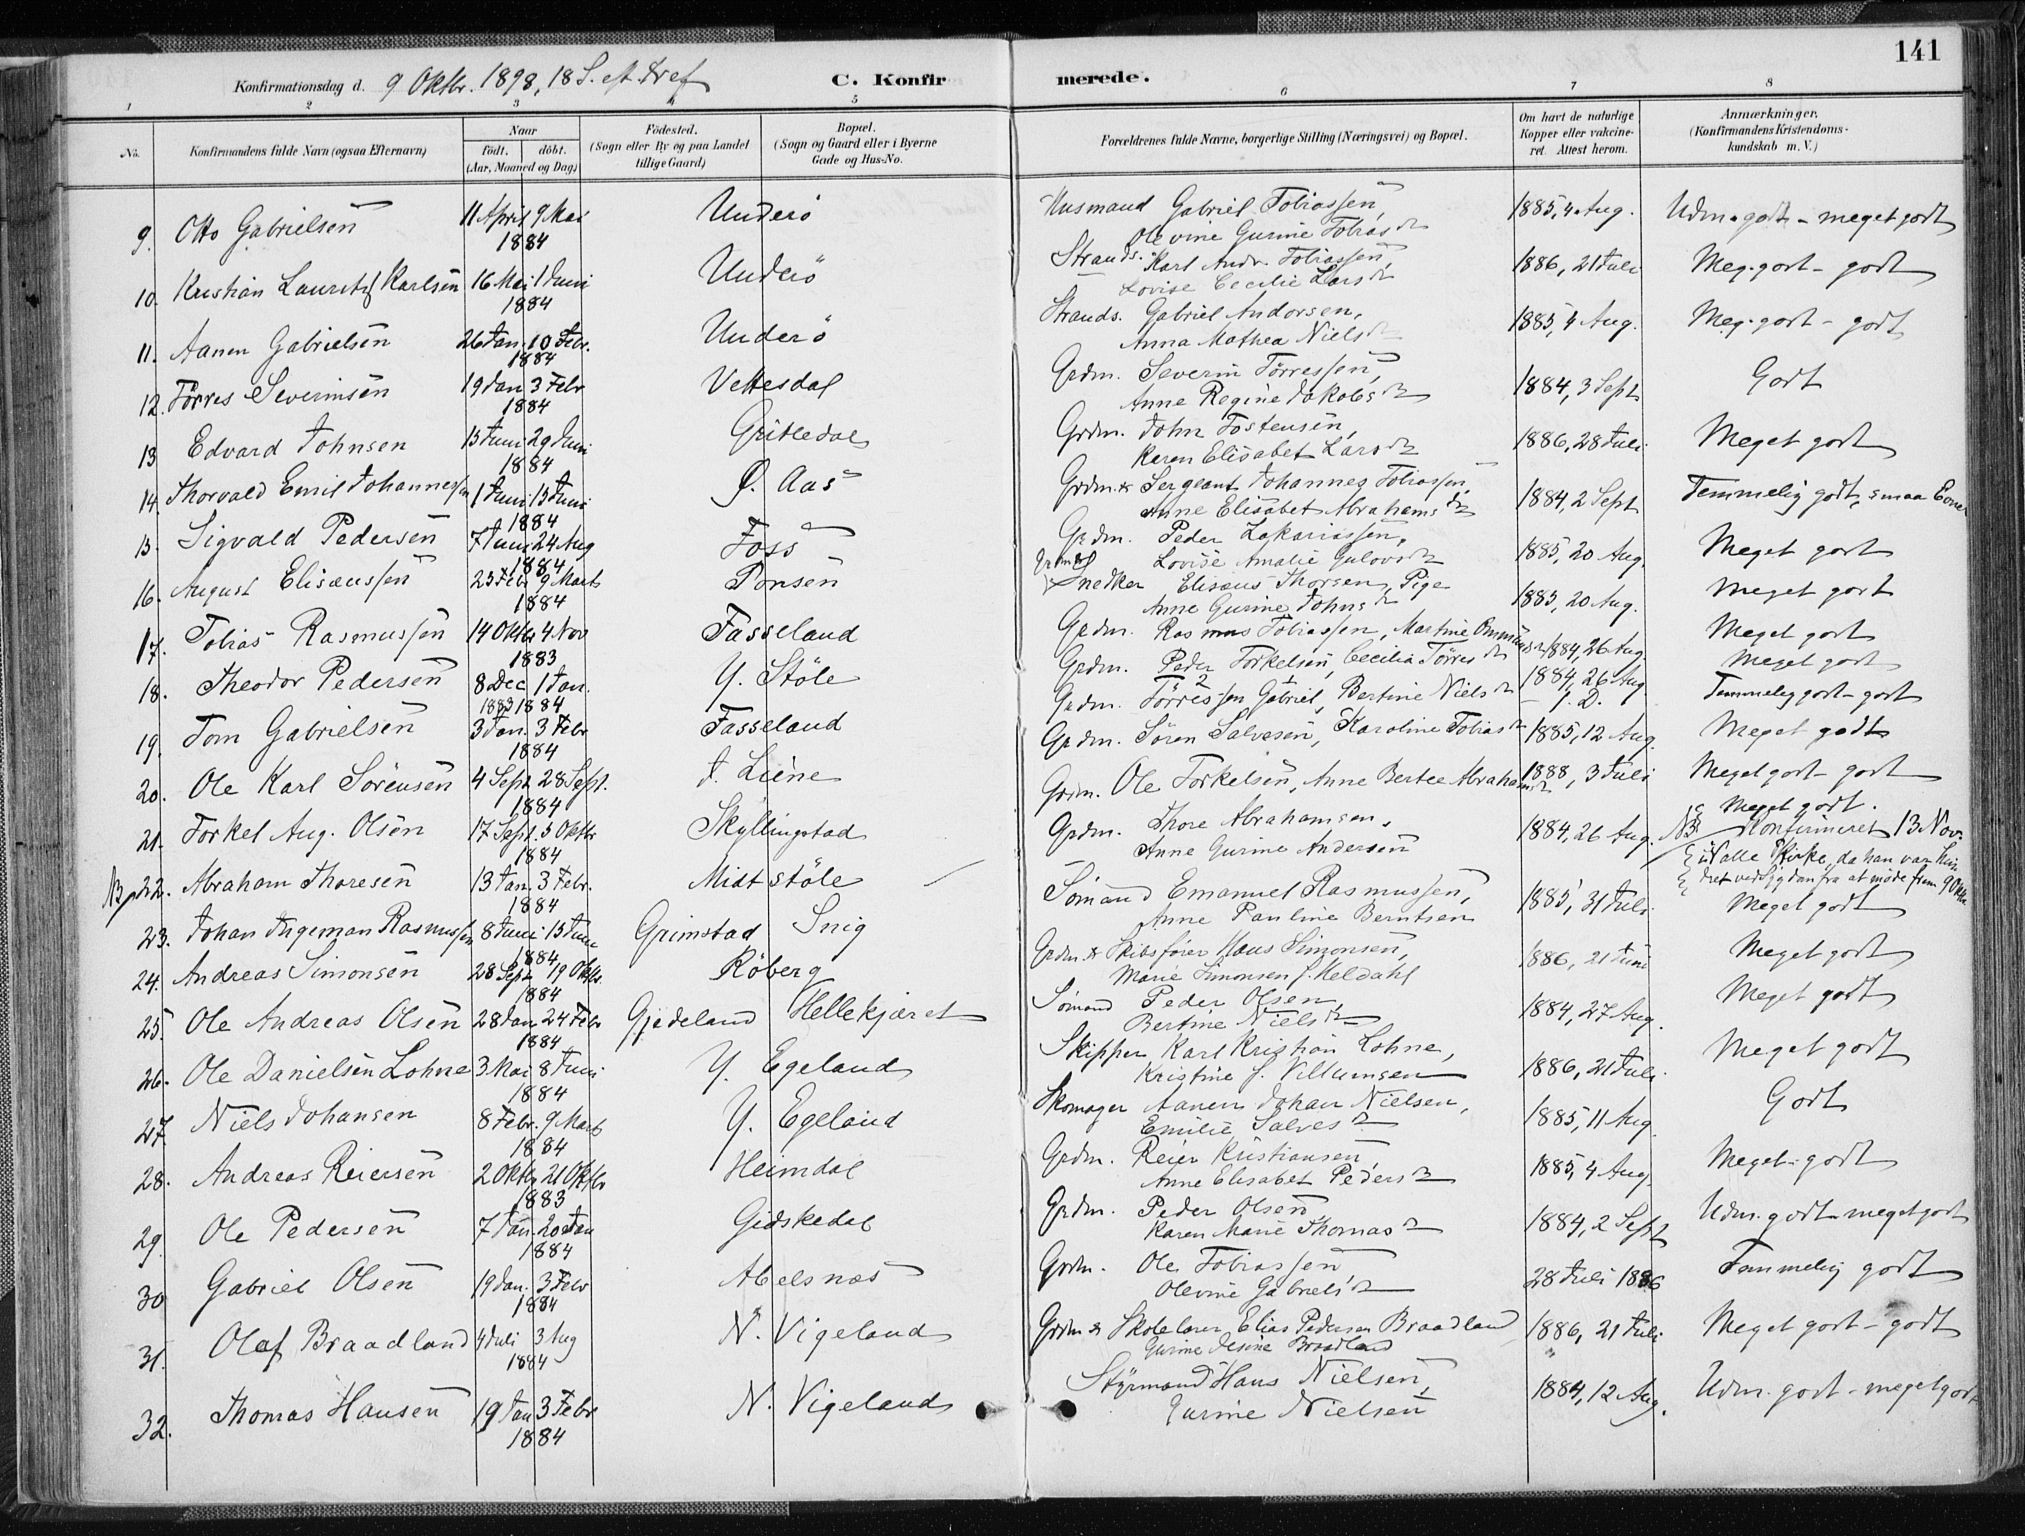 141
Konfirmationsdag d. 9 Oktbr. 1898, 18 S. eft. Tref
C. Konfirmerede.
1 2 3 4 5 6 7 8
No.
Konfirmandens fulde Navn (ogsaa Efternavn)
Naar
födt. döbt.
(Aar, Maaned og Dag)
Födested.
(Sogn eller By og paa Landet
tillige Gaard)
Bopæl.
(Sogn og Gaard eller i Byerne
Gade og Hus-No.
Forældrenes fulde Navne, borgerlige Stilling (Næringsvei) og Bopæl.
Om havt de naturlige
Kopper eller vakcine-
ret. Attest herom.
Anmærkninger.
(Konfirmandens Kristendoms-
kundskab m. V.)
9. Otto Gabrielsen 11 April 9 Mai Underö Husmand Gabriel Tobiassen, 1885, 4 Aug. Udm. godt - meget godt
1884 Olevine Gurine Tobiasd
10. Kristian Lauritz Karlsen 16 Mai 1 Juni Underö Strands. Karl Andr. Tobiassen, 1886, 21 Juli Meg. godt - godt
1884 Lovise Cecilie Larsd
11. Aanen Gabrielsen 26 Jan. 10 Febr. Underö Strands. Gabriel Andorsen, 1885, 4 Aug. Meg. godt - godt
1884 Anna Mathea Nielsd
12. Törres Severinsen 19 Jan 3 Febr Vettesdal Grdm. Severin Törressen, 1884, 3 Sept Godt
1884 Anne Regine Jakobsd
13 Edvard Johnsen 15 Juni 29 Juni Gritledal Grdm. John Tostensen, 1886, 28 Juli Meget godt
1884 Karen Elisabet Larsd
14. Thorvald Emil Johannessen 1 Juni 15 Juni Ö. Aas Grdm. & Sergeant Johannes Tobiassen, 1884, 2 Sept Temmelig godt, smaa Evner
1884 Anne Elisabet Abrahamsd
15. Sigvald Pedersen 7 Juni 24 Aug Foss Grdm. Peder Zakariassen, 1885, 20 Aug. Meget godt
1884 Lovise Amalie Gulovsd
16. August Elisæussen 23 Feb 9 Marts Ponsen Snedker Elisæus Thorsen, Pige 1885, 20 Aug. Meget godt
1884 Anne Gurine Johnsd
17. Tobias Rasmussen 14 Oktbr 4 Nov Fasseland Grdm. Rasmus Tobiassen, Martine 1884, 26 Aug Meget godt
1883
18. Theodor Pedersen 8 Dec 1 Jan. Y. Stöle Grdm. Peder Torkelsen, Cecilia Törresd 1884, 26 Aug Meget godt
1883 1884
19. Tom Gabrielsen 3 Jan. 3 Febr Fasseland Grdm. Törressen Gabriel, Bertine Nielsd - 1. D. Temmelig godt - godt
1884
20. Ole Karl Sörensen 4 Sept 28 Sept. I. Liene Grdm. Sören Salvesen, Karoline Tobiasd 1885, 12 Aug. Meget godt
1884
21. Torkel Aug. Olsen 17 Sept. 5 Oktbr Skyllingstad Grdm. Ole Torkelsen, Anne Bertee Abrahamsd 1888, 3 Juli Meget godt - godt
1884
NB 22. Abraham Thoresen 13 Jan. 3 Febr. Midtstöle Grdm. Thore Abrahamsen, 1884, 26 Aug. Meget godt.
1884 Anne Gurine Andersen NB Konfirmeret 13 Nov.
i Valle Kirke, da han var hin
dret ved Sygdom fra at möde frem 9 Okt.
23. Johan Ingeman Rasmussen 8 Juni 15 Juni Grimstad Snig Sömand Emanuel Rasmussen, 1885, 31 Juli Meget godt
1884 Anne Pauline Berntsen
24. Andreas Simonsen 28 Sept 19 Oktbr Röberg Grdm. & Skibsförer Hans Simonsen, 1886, 21 Juni Meget godt
1884 Marie Simonsen f. Heldahl
25 Ole Andreas Olsen 28 Jan 24 Febr Gjedeland Hellekjæret Sömand Peder Olsen, 1884, 27 Aug. Meget godt
1884 Bertine Nielsd
26. Ole Danielsen Lohne 3 Mai 8 Juni Y. Egeland Skipper Karl Kristian Lohne, 1886, 21 Juli. Meget godt
1884 Kristine f. Villumsen
27. Niels Johansen 8 Febr. 9 Marts Y. Egeland Skomager Aanen Johan Nielsen, 1885, 11 Aug. Godt
1884 Emilie Salvesd
28. Andreas Reiersen 2 Oktbr 21 Oktbr Heimdal Grdm. Reier Kristiansen, 1885, 4 Aug. Meget godt
1883 Anne Elisabet Pedersd
29 Ole Pedersen 7 Jan. 20 Jan Gidskedal Grdm. Peder Olsen, 1884, 2 Sept Udm. godt - meget godt
1884 Karen Marie Thomasd
30 Gabriel Olsen 19 Jan. 3 Febr Abelsnæs Grdm. Ole Tobiassen 28 Juli 1886 Temmelig godt
1884 Olevine Gabrielsd
31. Olaf Braadland 4 Juli 3 Aug N. Vigeland Grdm & Skolelærer Elias Pedersen Braadland 1886, 21 Juli Meget godt - godt
1884 Gurine Braadland
32. Thomas Hansen 19 Jan 3 Febr N. Vigeland Styrmand Hans Nielsen, 1884, 12 Aug. Udm. godt - meget godt
1884 Gurine Nielsen